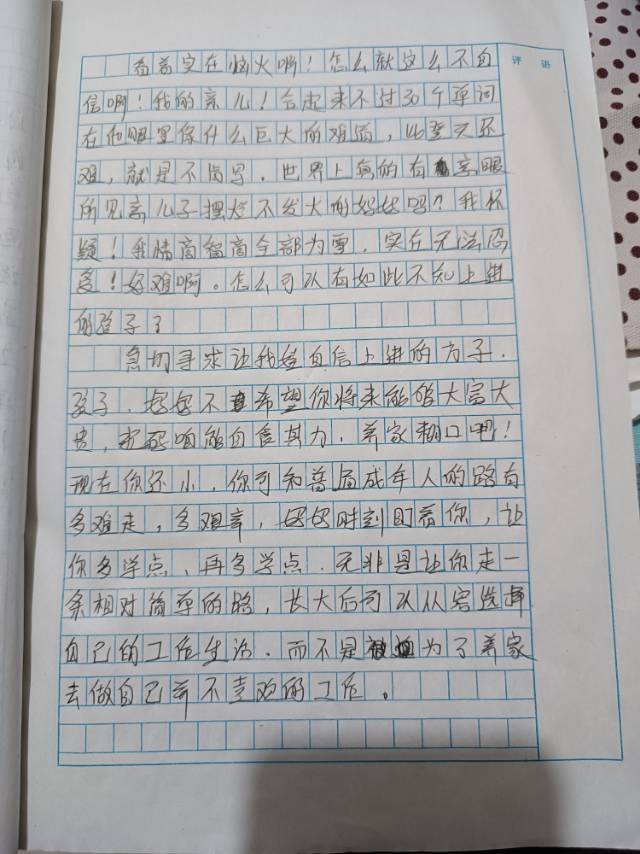 评 语
看着实在恼火啊！怎么就这么不自
信啊！我的亲儿！合起来不过30个单词
在他眼里像什么巨大的难题，比登天还
难，就是不肯写．世界上真的有亲眼
所见亲儿子摆烂不发火的妈妈吗？我怀
疑！我情商智商全部为零．实在无法忍
受！好难啊。怎么可以有如此不知上进
的孩子？
急切寻求让孩自信上进的方子．
孩子．妈妈不希望你将来能够大富大
贵，咱能自食其力．养家糊口吧！
现在你还小，你可知普通成年人的路有
多难走，多艰辛，妈妈时刻盯着你，让
你多学点、再多学点．无非是让你走一
条相对简单的路，长大后可以从容选择
自己的工作生活．而不是被迫为了养家
去做自己并不喜欢的工作。